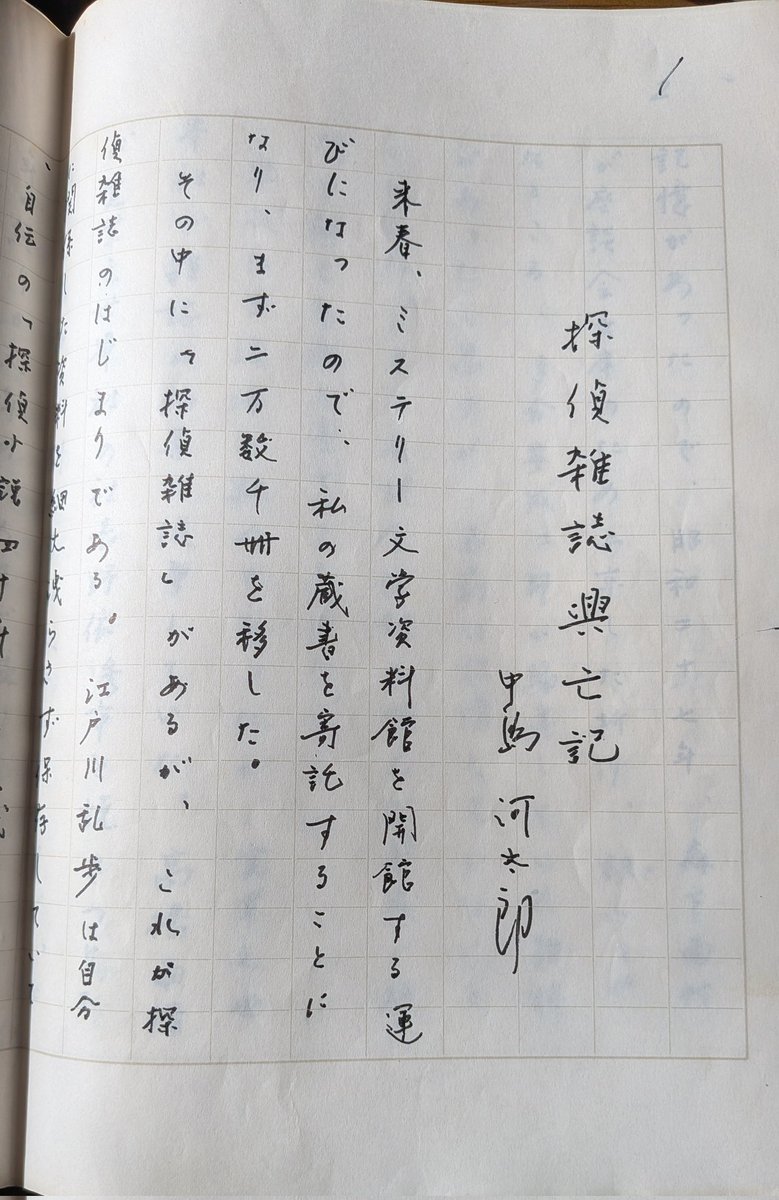 1
探偵雑誌興亡記
中島河太郎
来春、ミステリー文学資料館を開館する運
びになったので、私の蔵書を寄託することに
なり、まず二万数千冊を移した。
その中に「探偵雑誌」があるが、これが探
偵雑誌のはじまりである。江戸川乱歩は自分
に関係した資料を細大洩らさず保存していて
、自伝の「探偵小説四十年